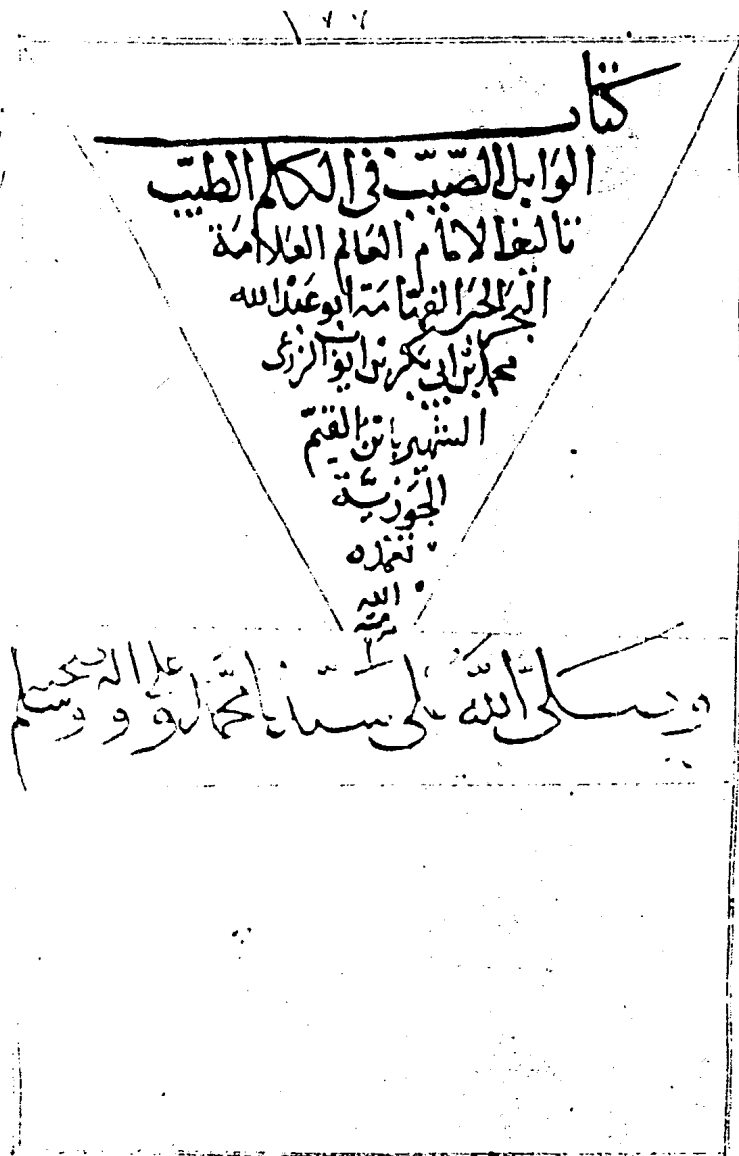 كتاب
الوَابل الصّيّب في الكلم الطيّب
تاليف الامام العَالم العَلامَة
البَحر الحَبر الفهّامَة ابو عَبْد الله
محمد بْن ابي بكر بن ايوب الزرعى
الشهير بابن القيّم
الجَوزيّة
تغمده
الله
برحمته
وصلى الله على سيدنا محمد و على اله وصحبه وسلم